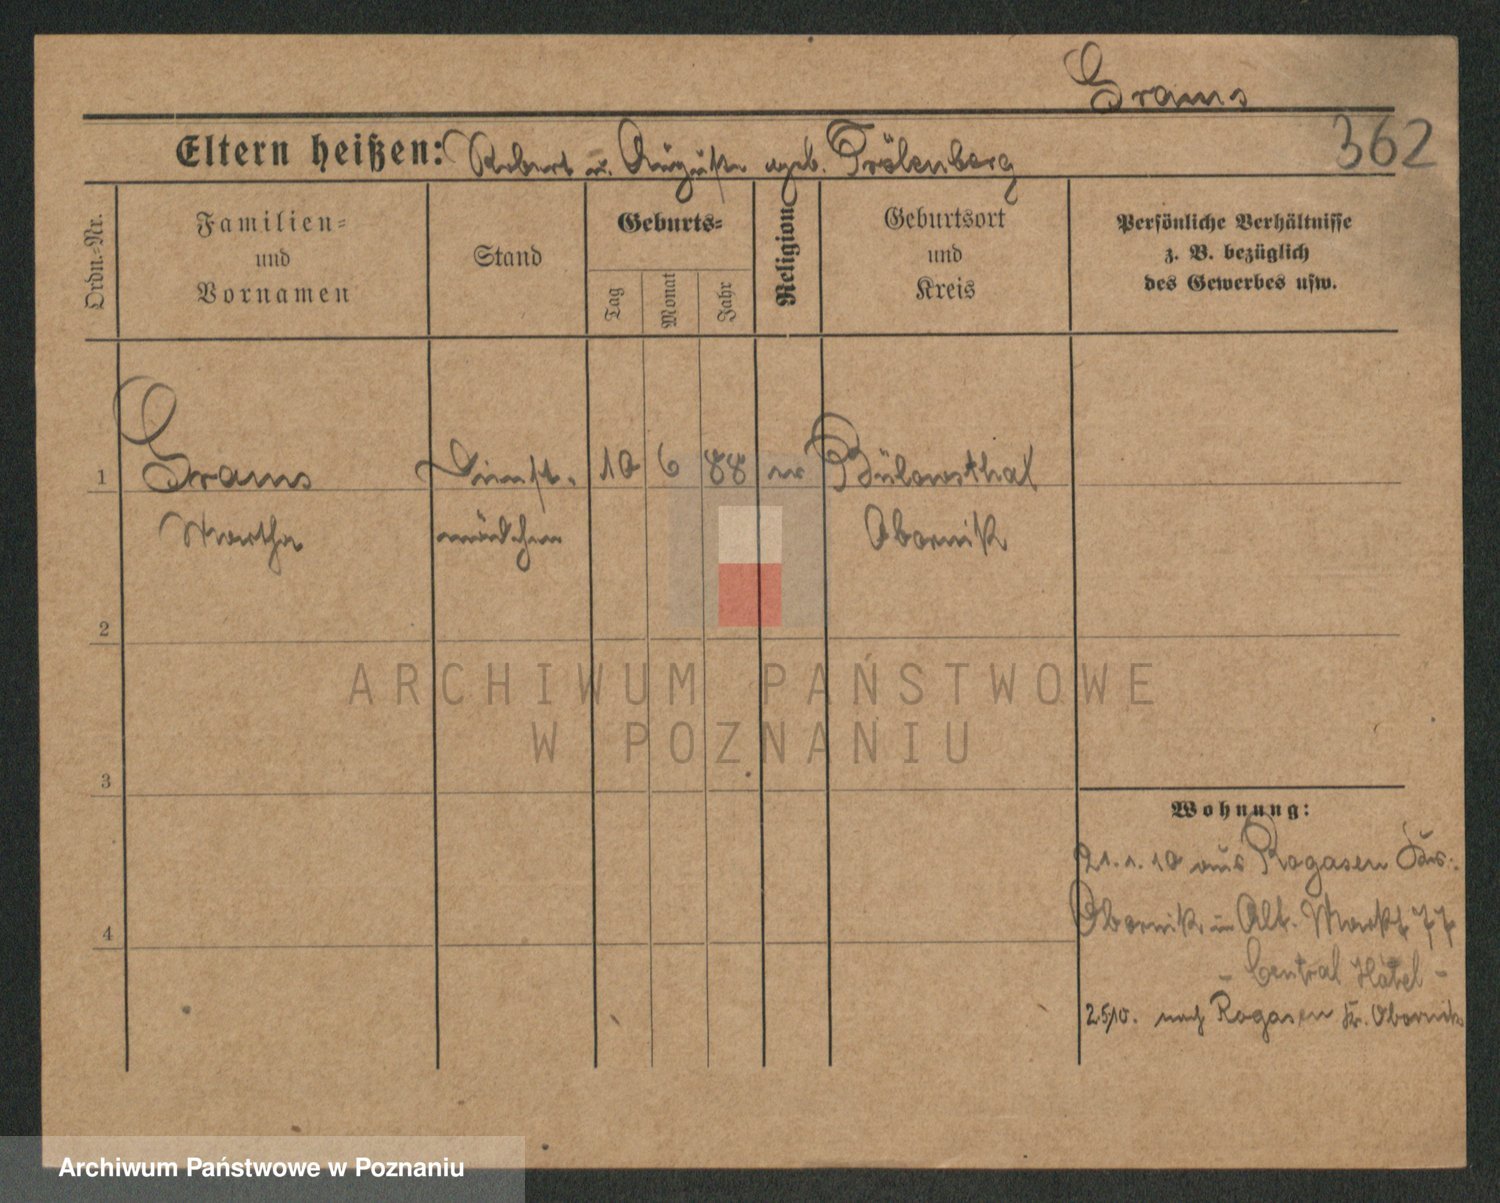 Grams
362
Eltern heißen: Robert u. Auguste geb. Frölenberg
Ordn.-Nr.
Familien-
und
Vornamen
Stand
Geburts-
Tag
Monat
Jahr
Religion
Geburtsort
und
Kreis
Persönliche Verhältnisse
z. B. bezüglich
des Gewerbes usw.
1
Grams
Martha
Dienst-
mädchen
10
6
88
ev
Bülowsthal
Obornik
2
3
4
Wohnung:
21.1.10 aus Rogasen Krs.
Obornik in Alt. Markt 77
- Central Hotel -
2.5.10. nach Rogasen Kr. Obornik
ARCHIWUM PAŃSTWOWE
W POZNANIU
Archiwum Państwowe w Poznaniu